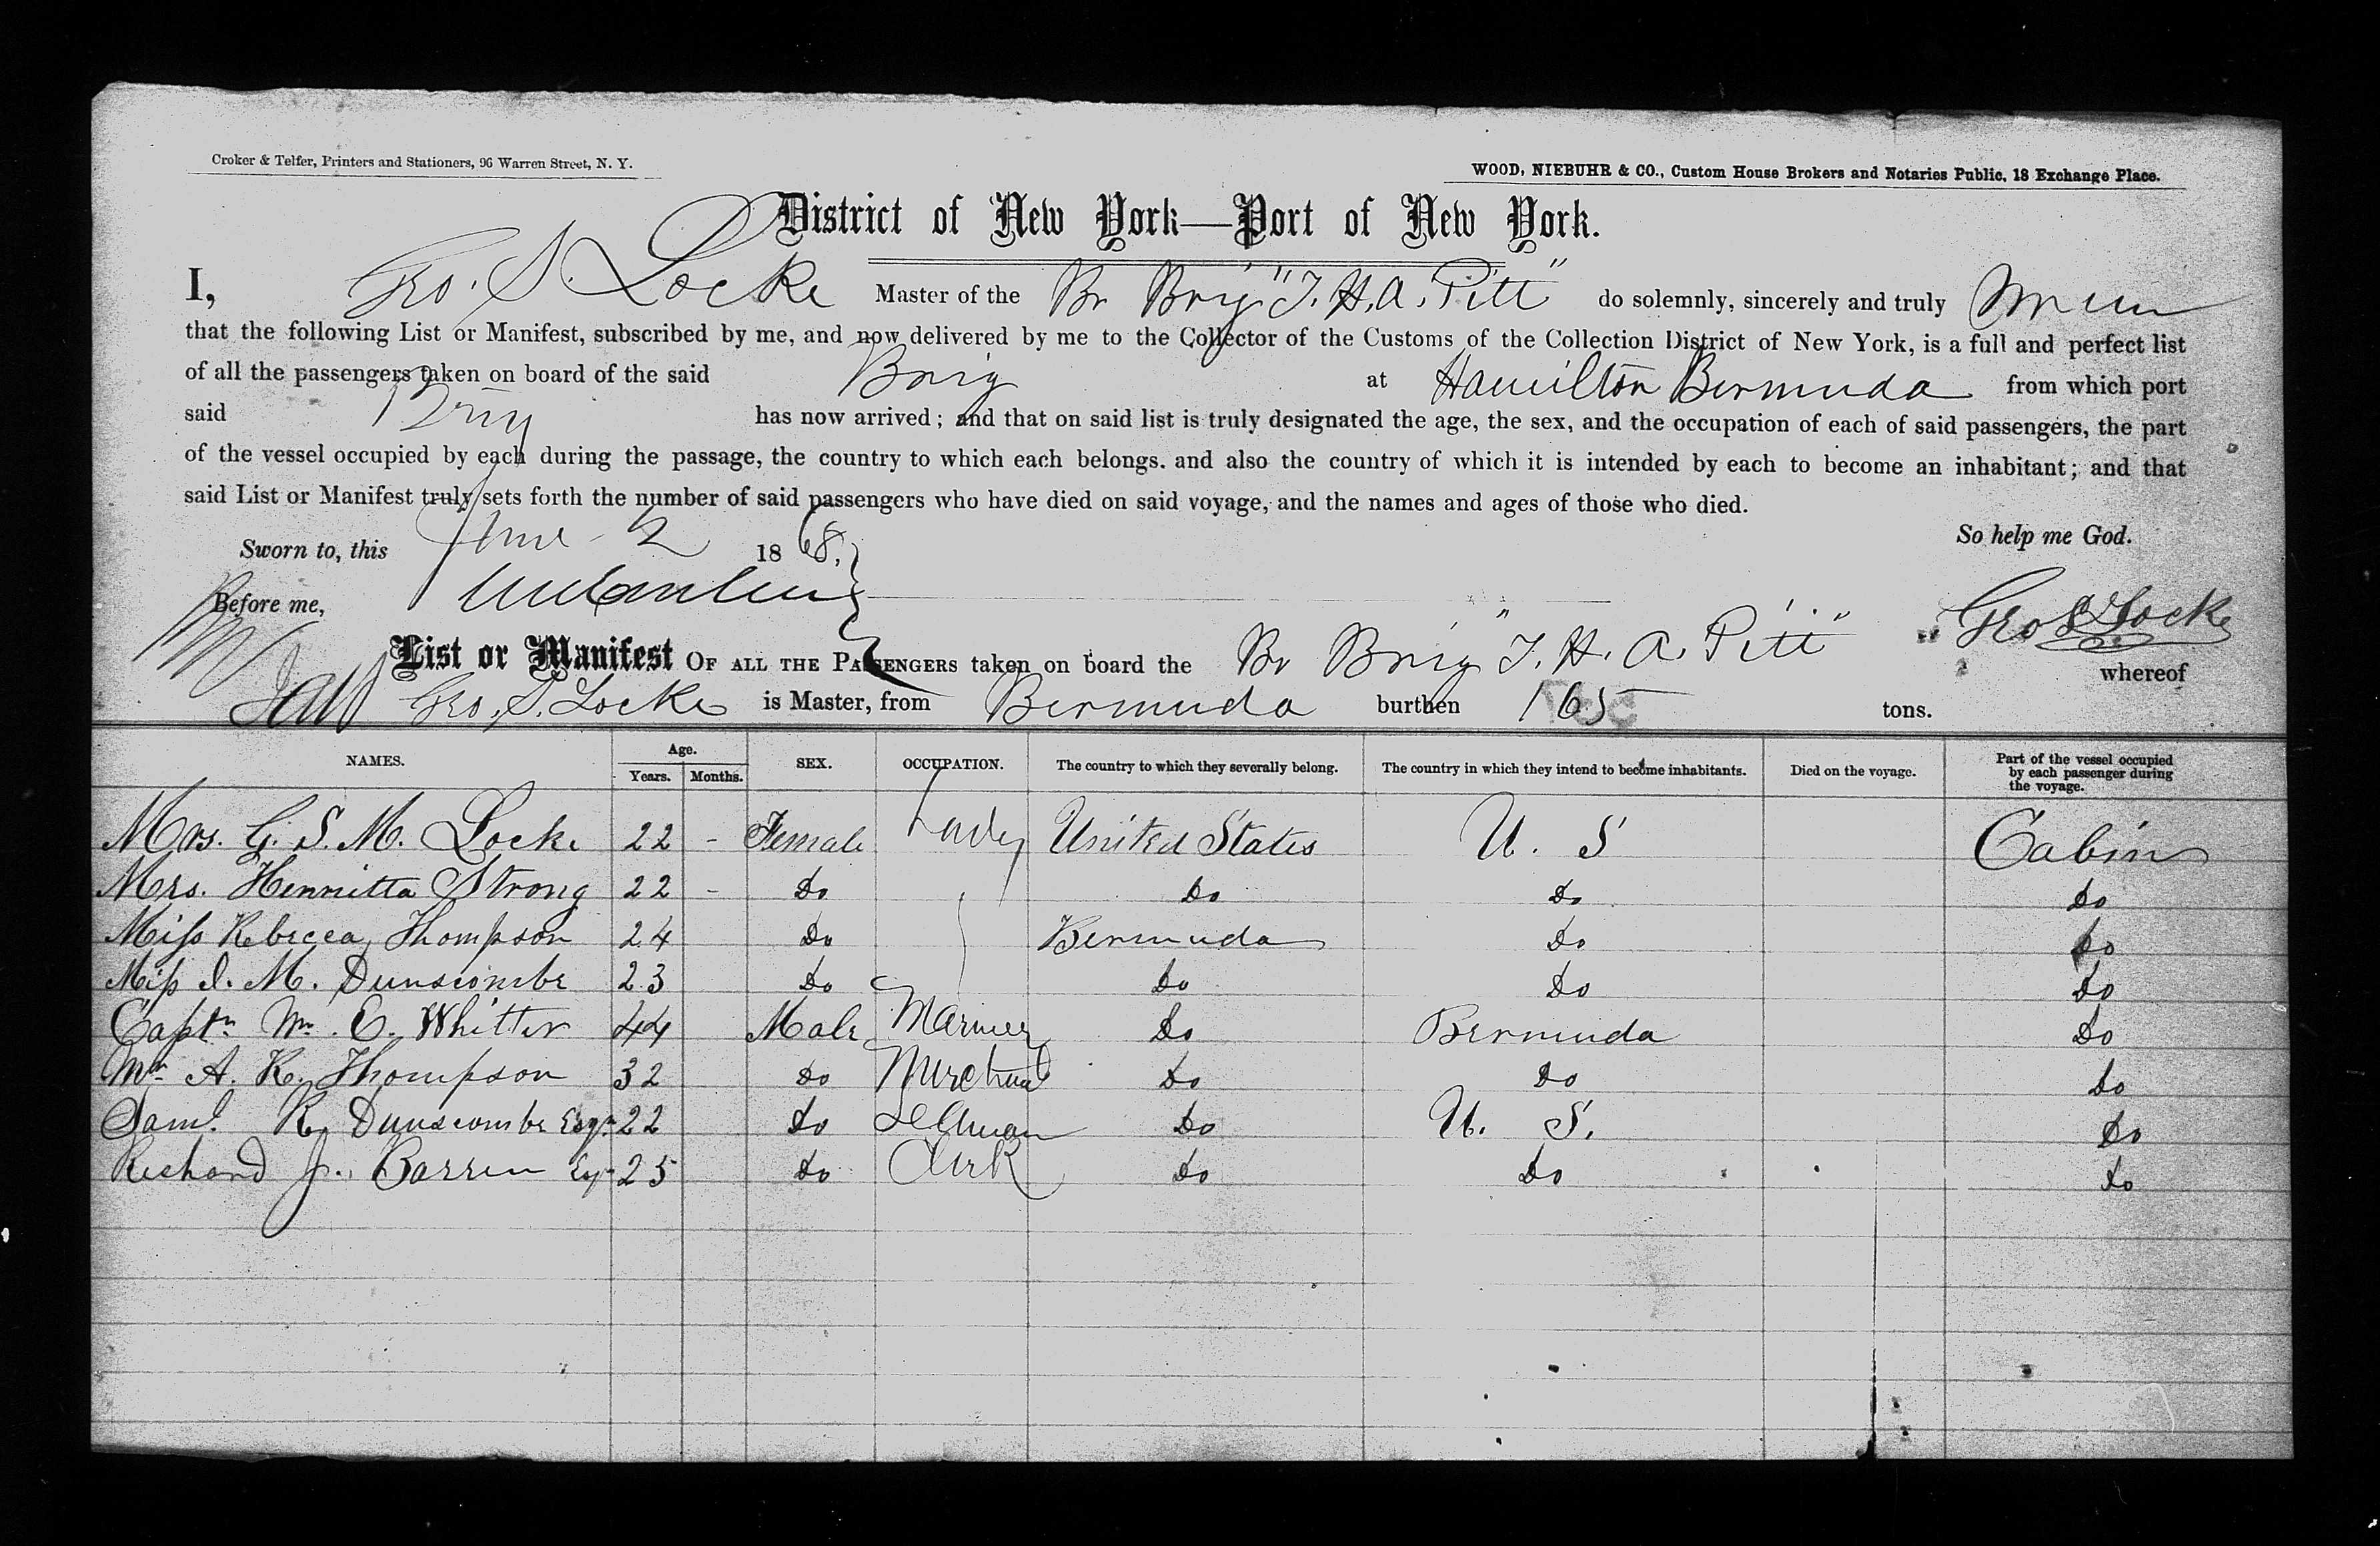 Croker & Telfer, Printers and Stationers, 96 Warren Street, N. Y.
WOOD, NIEBUHR & CO., Custom House Brokers and Notaries Public, 18 Exchange Place.
District of New York—Port of New York.
I, Geo. S. Locke Master of the Br Brig "T. H. A. Pitt" do solemnly, sincerely and truly
that the following List or Manifest, subscribed by me, and now delivered by me to the Collector of the Customs of the Collection District of New York, is a full and perfect list
of all the passengers taken on board of the said Brig at Hamilton Bermuda from which port
said Brig has now arrived; and that on said list is truly designated the age, the sex, and the occupation of each of said passengers, the part
of the vessel occupied by each during the passage, the country to which each belongs. and also the country of which it is intended by each to become an inhabitant; and that
said List or Manifest truly sets forth the number of said passengers who have died on said voyage, and the names and ages of those who died.
Sworn to, this June 2 1868. So help me God.
Before me, Geo S Locke
List or Manifest OF ALL THE PASSENGERS taken on board the Br Brig "T. H. A. Pitt" whereof
Geo. S. Locke is Master, from Bermuda burthen 165 tons.
NAMES. Age. Years. Months. SEX. OCCUPATION. The country to which they severally belong. The country in which they intend to become inhabitants. Died on the voyage. Part of the vessel occupied by each passenger during the voyage.
Mrs. G. S. M. Locke 22 - Female Lady United States U. S Cabin
Mrs. Henritta Strong 22 - Do Do Do Do
Miss Rebecca Thompson 24 Do Bermuda Do Do
Miss I. M. Dunscombe 23 Do Do Do Do
Captn Wm. E. Whitter 44 Male Mariner Do Bermuda Do
Mr A. K. Thompson 32 Do Merchant Do Do Do
Saml. R. Dunscombe Esqr 22 Do Do U. S. Do
Richard J. Barren Esqr 25 Do Clerk Do Do Do